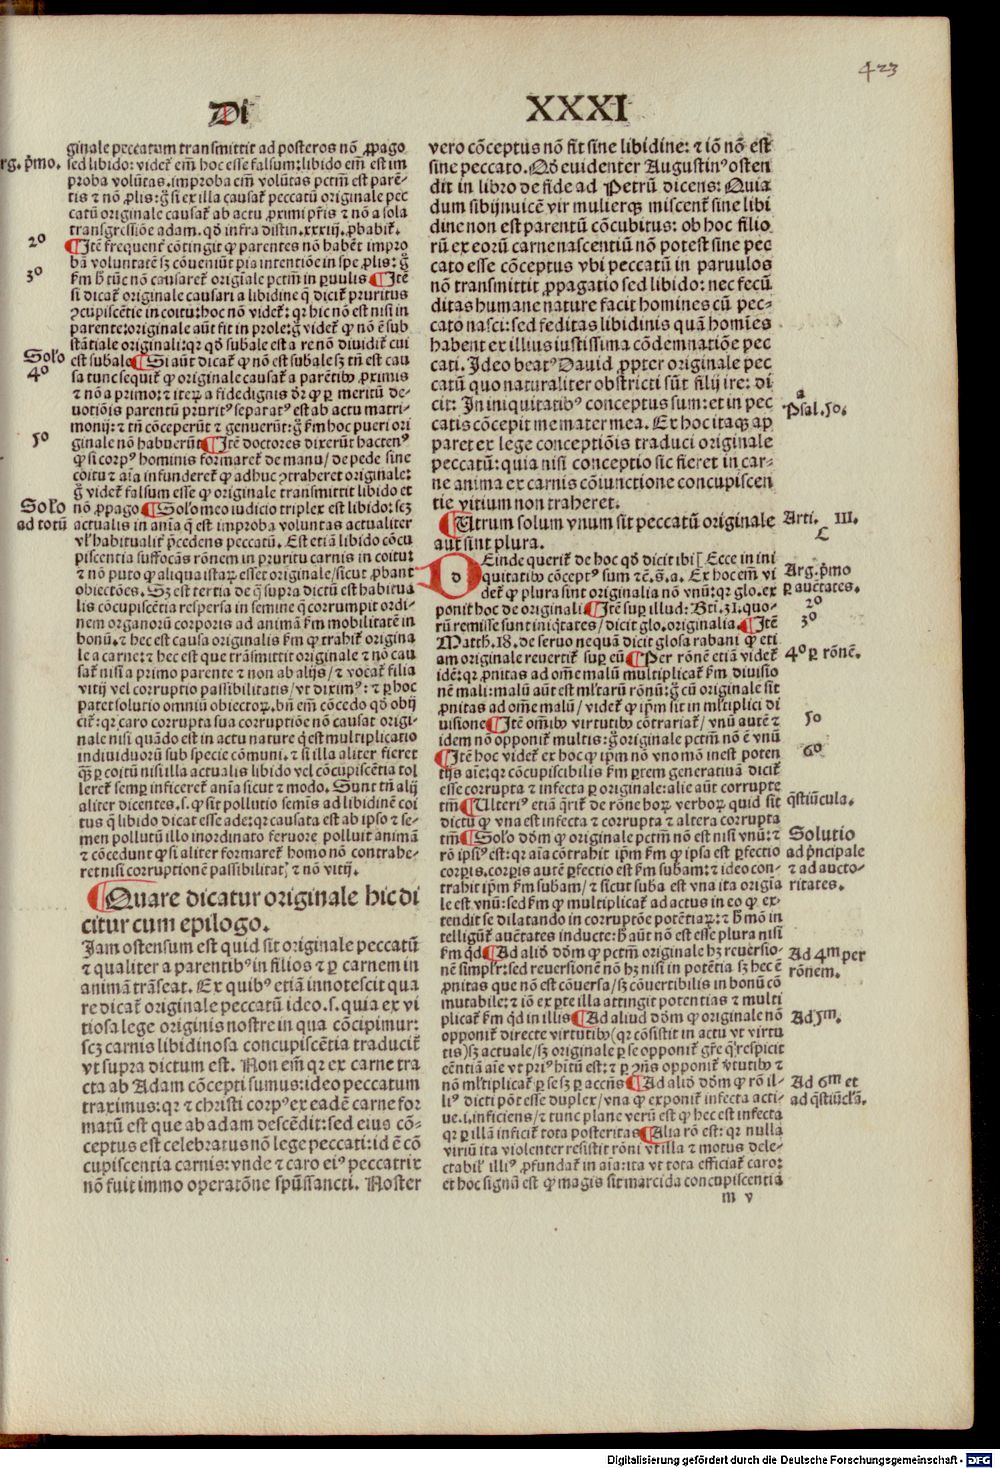 423
Di XXXI
ginale peccatum transmittit ad posteros nõ ꝓpago
sed libido: videt᷑ em̃ hoc esse falsum: libido em̃ est im
proba volũtas. improba em̃ volũtas pctm̃ est parẽ-
tis ⁊ nõ ꝓlis: g̃ si ex illa causat᷑ peccatũ originale pec
catũ originale causat᷑ ab actu ꝓximi pr̃is ⁊ nõ a sola
transgressiõe adam. qd̃ infra distin. xxxiij. ꝓbabit᷑.
¶ Itẽ frequent᷑ cõtingit ꝙ parentes nõ habẽt impro
bã voluntatẽ sꝫ cõueniũt ꝓpia intentiõe in spe ꝓlis: g̃
ẜm h̃ tũc nõ causaret᷑ origĩale pctm̃ in ꝑuulis ¶ Itẽ
si dicat᷑ originale causari a libidine q̃ dicit᷑ pruritus
ꝯcupiscẽtie in coitu: hoc nõ videt᷑: qr hic nõ est nisi in
parente: originale aũt fit in prole: g̃ videt᷑ ꝙ nõ ẽ sub
stãtiale originali: qr qd̃ subale est a re nõ diuidit᷑ cui
est subale ¶ Si aũt dicat᷑ ꝙ nõ est subale sꝫ tñ est cau
sa tunc sequit᷑ ꝙ originale causat᷑ a parẽtibꝰ ꝓximis
⁊ nõ a primo: ⁊ iteꝝ a fidedignis dr̃ ꝙ ꝑ meritũ de-
uotiõis parentũ pruritꝰ separatꝰ est ab actu matri-
monij: ⁊ tñ cõceperũt ⁊ genuerũt: g̃ ẜm hoc pueri ori
ginale nõ habuerũt ¶ Itẽ doctores dixerũt hactenꝰ
ꝙ si corpꝰ hominis formaret᷑ de manu / de pede sine
coitu ⁊ aĩa infunderet᷑ ꝙ adhuc ꝯtraheret originale:
g̃ videt᷑ falsum esse ꝙ originale transmittit libido et
nõ ꝓpago ¶ Solo meo iudicio triplex est libido: scꝫ
actualis in anĩa q̃ est improba voluntas actualiter
vl̃ habitualit᷑ p̃cedens peccatũ. Est etiã libido cõcu
piscentia suffocãs rõnem in pruritu carnis in coitu:
⁊ nõ puto ꝙ aliqua istaꝝ esset originale / sicut ꝓbant
obiectões. Sꝫ est tertia de q̃ supra dictũ est habitua
lis cõcupiscẽtia respersa in semine q̃ corrumpit ordi-
nem organorũ corporis ad animã ẜm mobilitatẽ in
bonũ. ⁊ hec est causa originalis ẜm ꝙ trahit᷑ origina
le a carne: ⁊ hec est que trãsmittit originale ⁊ nõ cau
sat᷑ nisi a primo parente ⁊ non ab alijs / ⁊ vocat᷑ filia
vitij vel corruptio passibilitatis / vt diximꝰ: ⁊ ꝑ hoc
patet solutio omniũ obiectoꝝ. bñ em̃ cõcedo qd̃ obij
cit᷑: qr caro corrupta sua corruptiõe nõ causat origi-
nale nisi quãdo est in actu nature q̃ est multiplicatio
indiuiduorũ sub specie cõmuni. ⁊ si illa aliter fieret
qꝫ ꝑ coitũ nisi illa actualis libido vel cõcupiscẽtia tol
leret᷑ semꝑ inficeret᷑ anĩa sicut ⁊ modo. Sunt tñ alij
aliter dicentes. s. ꝙ sit pollutio semĩs ad libidinẽ coi
tus q̃ libido dicat᷑ esse ade: qr causata est ab ipso ⁊ se-
men pollutũ illo inordinato feruore polluit animã
⁊ cõcedunt ꝙ si aliter formaret᷑ homo nõ contrahe-
ret nisi corruptionẽ passibilitatꝭ ⁊ nõ vitij.
¶ Quare dicatur originale hic di
citur cum epilogo.
Iam ostensum est quid sit originale peccatũ
⁊ qualiter a parentibꝰ in filios ⁊ ꝑ carnem in
animã trãseat. Ex quibꝰ etiã innotescit qua
re dicat᷑ originale peccatũ ideo. s. quia ex vi
tiosa lege originis nostre in qua cõcipimur:
scꝫ carnis libidinosa concupiscẽtia traducit᷑
vt supra dictum est. Non em̃ qr ex carne tra
cta ab Adam cõcepti sumus: ideo peccatum
traximus: qr ⁊ christi corpꝰ ex eadẽ carne for
matũ est que ab adam descẽdit: sed eius cõ-
ceptus est celebratus nõ lege peccati: id ẽ cõ
cupiscentia carnis: vnde ⁊ caro eiꝰ peccatrix
nõ fuit immo operatõne spũssancti. Noster
vero cõceptus nõ fit sine libidine: ⁊ iõ nõ est
sine peccato. Qd̃ euidenter Augustinꝰ osten
dit in libro de fide ad Petrũ dicens: Quia
dum sibijnuicẽ vir mulierqꝫ miscent᷑ sine libi
dine non est parentũ cõcubitus: ob hoc filio
rũ ex eorũ carne nascentiũ nõ potest sine pec
cato esse cõceptus vbi peccatũ in paruulos
nõ transmittit ꝓpagatio sed libido: nec fecũ
ditas humane nature facit homines cũ pec-
cato nasci: sed feditas libidinis quã homĩes
habent ex illius iustissima cõdemnatiõe pec
cati. Ideo beatꝰ Dauid ꝓpter originale pec
catũ quo naturaliter obstricti sũt filij ire: di
cit: In iniquitatibꝰ conceptus sum: et in pec
catis cõcepit me mater mea. Ex hoc itaqꝫ ap
paret ex lege conceptiõis traduci originale
peccatũ: quia nisi conceptio sic fieret in car-
ne anima ex carnis cõiunctione concupiscen
tie vitium non traheret.
¶ Utrum solum vnum sit peccatũ originale
aut sint plura.
D Einde querit᷑ de hoc qd̃ dicit ibi [ Ecce in ini
quitatibꝰ cõceptꝰ sum ⁊c̃. g̃. a. Ex hoc em̃ vi
det᷑ ꝙ plura sint originalia nõ vnũ: qr glo. ex
ponit hoc de originali ¶ Itẽ suꝑ illud: Bti. 31. quo-
rũ remisse sunt iniq̃tates / dicit glo. originalia ¶ Itẽ
Matth. 18. de seruo nequã dicit glosa rabani ꝙ eti
am originale reuertit᷑ suꝑ eũ ¶ Per rõnẽ etiã videt᷑
idẽ: qr ꝓnitas ad om̃e malũ multiplicat᷑ ẜm diuisio
nẽ mali: malũ aũt est ml̃tarũ rõnũ: g̃ cũ originale sit
ꝓnitas ad om̃e malũ / videt᷑ ꝙ ip̃m sit in ml̃tiplici di
uisione ¶ Itẽ om̃ibꝰ virtutibꝰ cõtrariat᷑ / vnũ autẽ ⁊
idem nõ opponit᷑ multis: g̃ originale pctm̃ nõ ẽ vnũ
¶ Itẽ hoc videt᷑ ex hoc ꝙ ip̃m nõ vno mõ inest poten
tijs aĩe: qr cõcupiscibilis ẜm ꝑtem generatiuã dicit᷑
esse corrupta ⁊ infecta ꝑ originale: alie aũt corrupte
tm̃ ¶ Ulteriꝰ etiã q̃rit᷑ de rõne hoꝝ verboꝝ quid sit
dictũ ꝙ vna est infecta ⁊ corrupta ⁊ altera corrupta
tm̃ ¶ Solo dõm ꝙ originale pctm̃ nõ est nisi vnũ: ⁊
rõ ipsiꝰ est: qr aĩa cõtrahit ip̃m ẜm ꝙ ipsa est ꝑfectio
corꝑis. corꝑis autẽ ꝑfectio est ẜm subam: ⁊ ideo con-
trahit ip̃m ẜm subam / ⁊ sicut suba est vna ita origia
le est vnũ: sed ẜm ꝙ multiplicat᷑ ad actus in eo ꝙ ex-
tendit se dilatando in corruptõe potẽtiaꝝ: ⁊ h̃ mõ in
telligũt᷑ auctẽates inducte: h̃ aũt nõ est esse plura nisi
ẜm qd̃ ¶ Ad aliõ dõm ꝙ pctm̃ originale hꝫ reuersio-
nẽ simplr̃: sed reuersionẽ nõ hꝫ nisi in potẽtia sꝫ hec ẽ
ꝓnitas que nõ est cõuersa / sꝫ cõuertibilis in bonũ cõ
mutabile: ⁊ iõ ex ꝑte illa attingit potentias ⁊ multi
plicat᷑ ẜm qd̃ in illis ¶ Ad aliud dõm ꝙ originale nõ
opponit᷑ directe virtutibꝰ (qr cõsistit in actu vt virtu
tis) sꝫ actuale / sꝫ originale ꝑ se opponit᷑ gr̃e q̃ respicit
eẽntiã aĩe vt priꝰ hitũ est: ⁊ ꝑ ꝯñs opponit᷑ v̾tutibꝰ ⁊
nõ ml̃tiplicat᷑ ꝑ se sꝫ ꝑ accñs ¶ Ad aliõ dõm ꝙ rõ il-
liꝰ dicti põt esse duplex / vna ꝙ exponit᷑ infecta acti-
ue. i. inficiens / ⁊ tunc plane verũ est ꝙ hec est infecta
qr ꝑ illã inficit᷑ tota posteritas ¶ Alia rõ est: qr nulla
viriũ ita violenter resistit rõni vt illa ⁊ motus dele-
ctabil̃ illiꝰ ꝓfundat᷑ in aĩa: ita vt tota efficiat᷑ caro:
et hoc signũ est ꝙ magis sit marcida concupiscentia
m v
rg. p̃mo.
2º
3º
Solo
4º
5º
Solo
ad totũ
a
Psal. 50.
Arti. III.
C
Arg. p̃mo
ꝑ auctates.
2º
3º
4º ꝑ rõnẽ.
5º
6º
q̃stiũcula.
Solutio
ad p̃ncipale
⁊ ad aucto-
ritates.
Ad 4m per
rõnem.
Ad 5m.
Ad 6m et
ad q̃stiũclã.
Digitalisierung gefördert durch die Deutsche Forschungsgemeinschaft - DFG